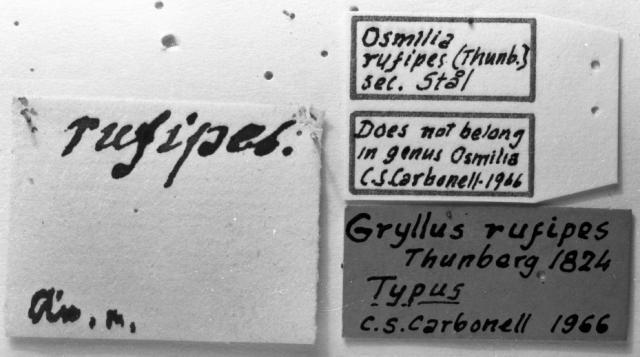 rufipes.
Osmilia
rufipes (Thunb.)
sec. Stål
Does not belong
in genus Osmilia
C.S.Carbonell-1966
Gryllus rufipes
Thunberg 1824
Typus
C.S.Carbonell 1966